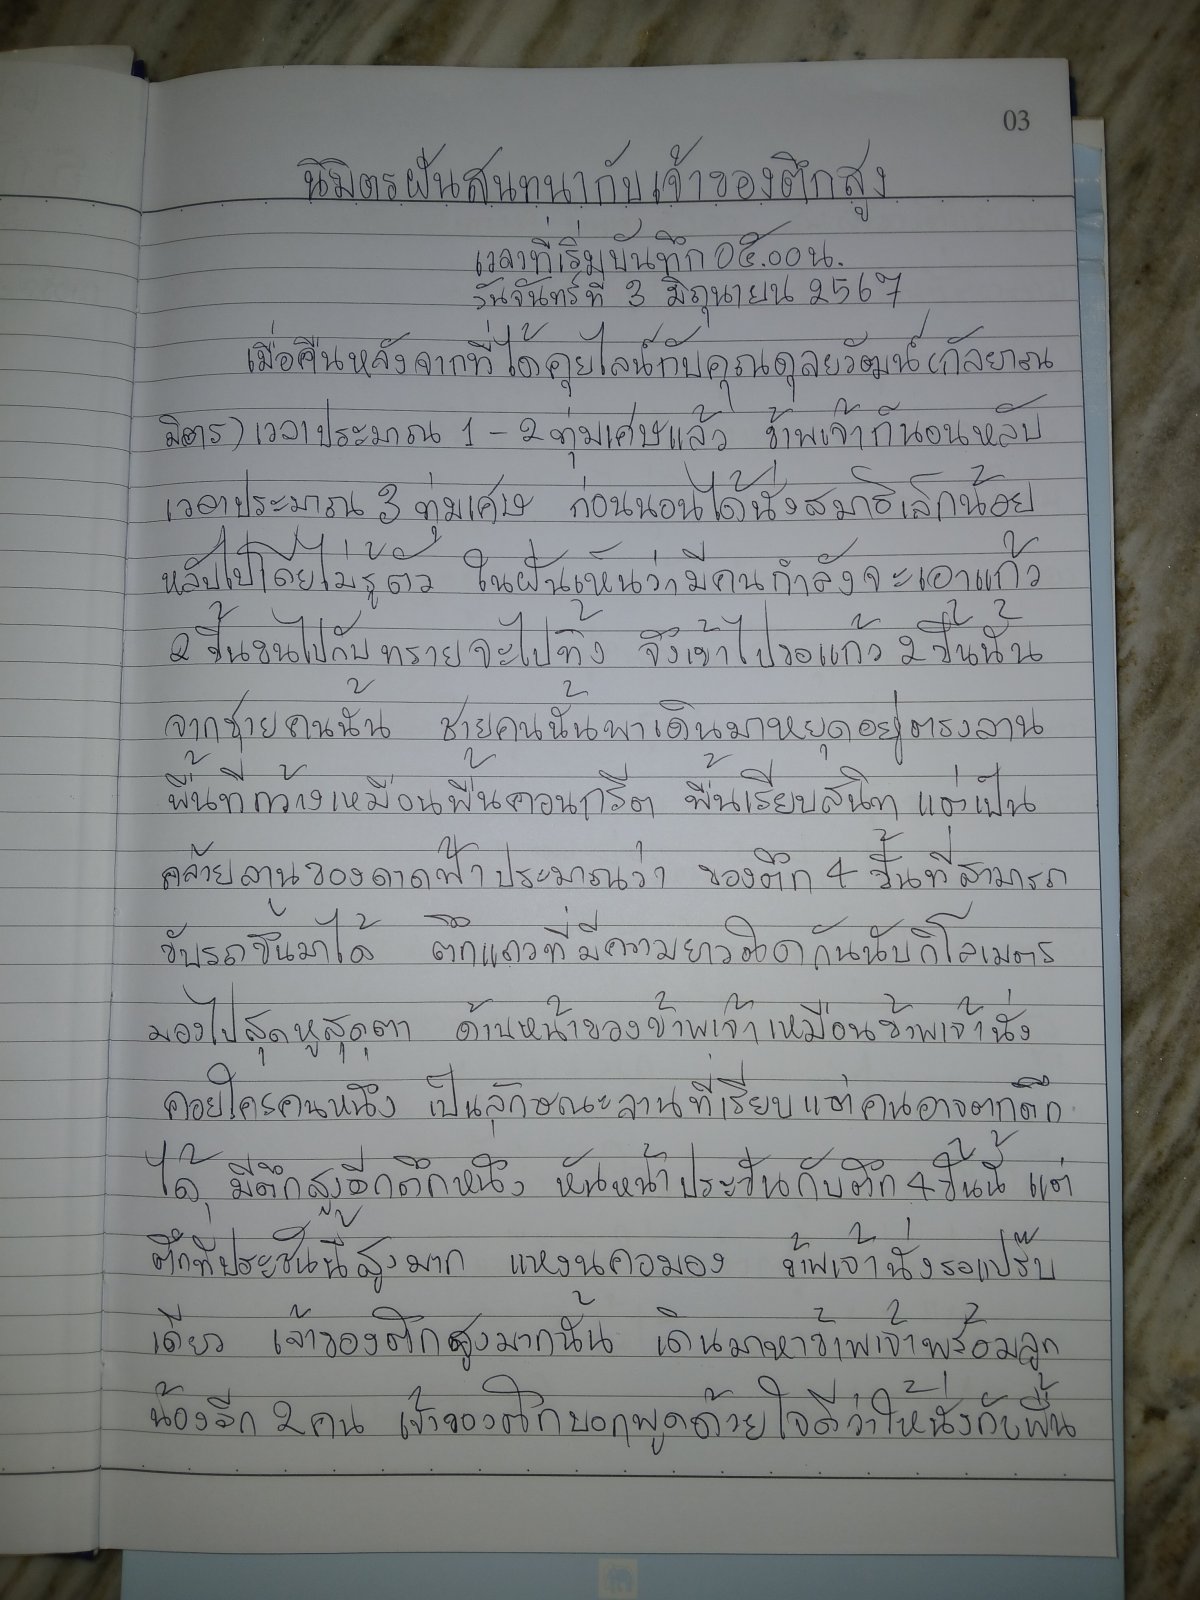 03
นิมิตรฝันสนทนากับเจ้าของตึกสูง
เวลาที่เริ่มบันทึก ๐๕.๐๐ น.
วันจันทร์ที่ 3 มิถุนายน 2567
เมื่อคืนหลังจากที่ได้คุยไลน์กับคุณดุลยวัฒน์ (กัลยาณ
มิตร) เวลาประมาณ 1 - 2 ทุ่มเศษแล้ว ข้าพเจ้าก็นอนหลับ
เวลาประมาณ 3 ทุ่มเศษ ก่อนนอนได้นั่งสมาธิเล็กน้อย
หลับไปโดยไม่รู้ตัว ในฝันเห็นว่ามีคนกำลังจะเอาแก้ว
2 ชิ้นขนไปกับทรายจะไปทิ้ง จึงเข้าไปขอแก้ว 2 ชิ้นนั้น
จากชายคนนั้น ชายคนนั้นพาเดินมาหยุดอยู่ตรงลาน
พื้นที่กว้างเหมือนพื้นคอนกรีต พื้นเรียบสนิท แต่เป็น
คล้ายลานของดาดฟ้าประมาณว่า ของตึก 4 ชั้นที่สามารถ
ขับรถขึ้นมาได้ ตึกแถวที่มีความยาวติดกันนับกิโลเมตร
มองไปสุดหูสุดตา ด้านหน้าของข้าพเจ้าเหมือนข้าพเจ้านั่ง
คอยใครคนหนึ่ง เป็นลักษณะลานที่เรียบแต่คนอาจตกตึก
ได้ มีตึกสูงอีกตึกหนึ่ง หันหน้าประชันกับตึก 4 ชั้นนี้ แต่
ตึกที่ประชันนี้สูงมาก แหงนคอมอง ข้าพเจ้านั่งรอแป๊บ
เดียว เจ้าของตึกสูงมากนั้น เดินมาหาข้าพเจ้าพร้อมลูก
น้องอีก 2 คน เจ้าของตึกบอกพูดด้วยใจดีว่าให้นั่งกับพื้น